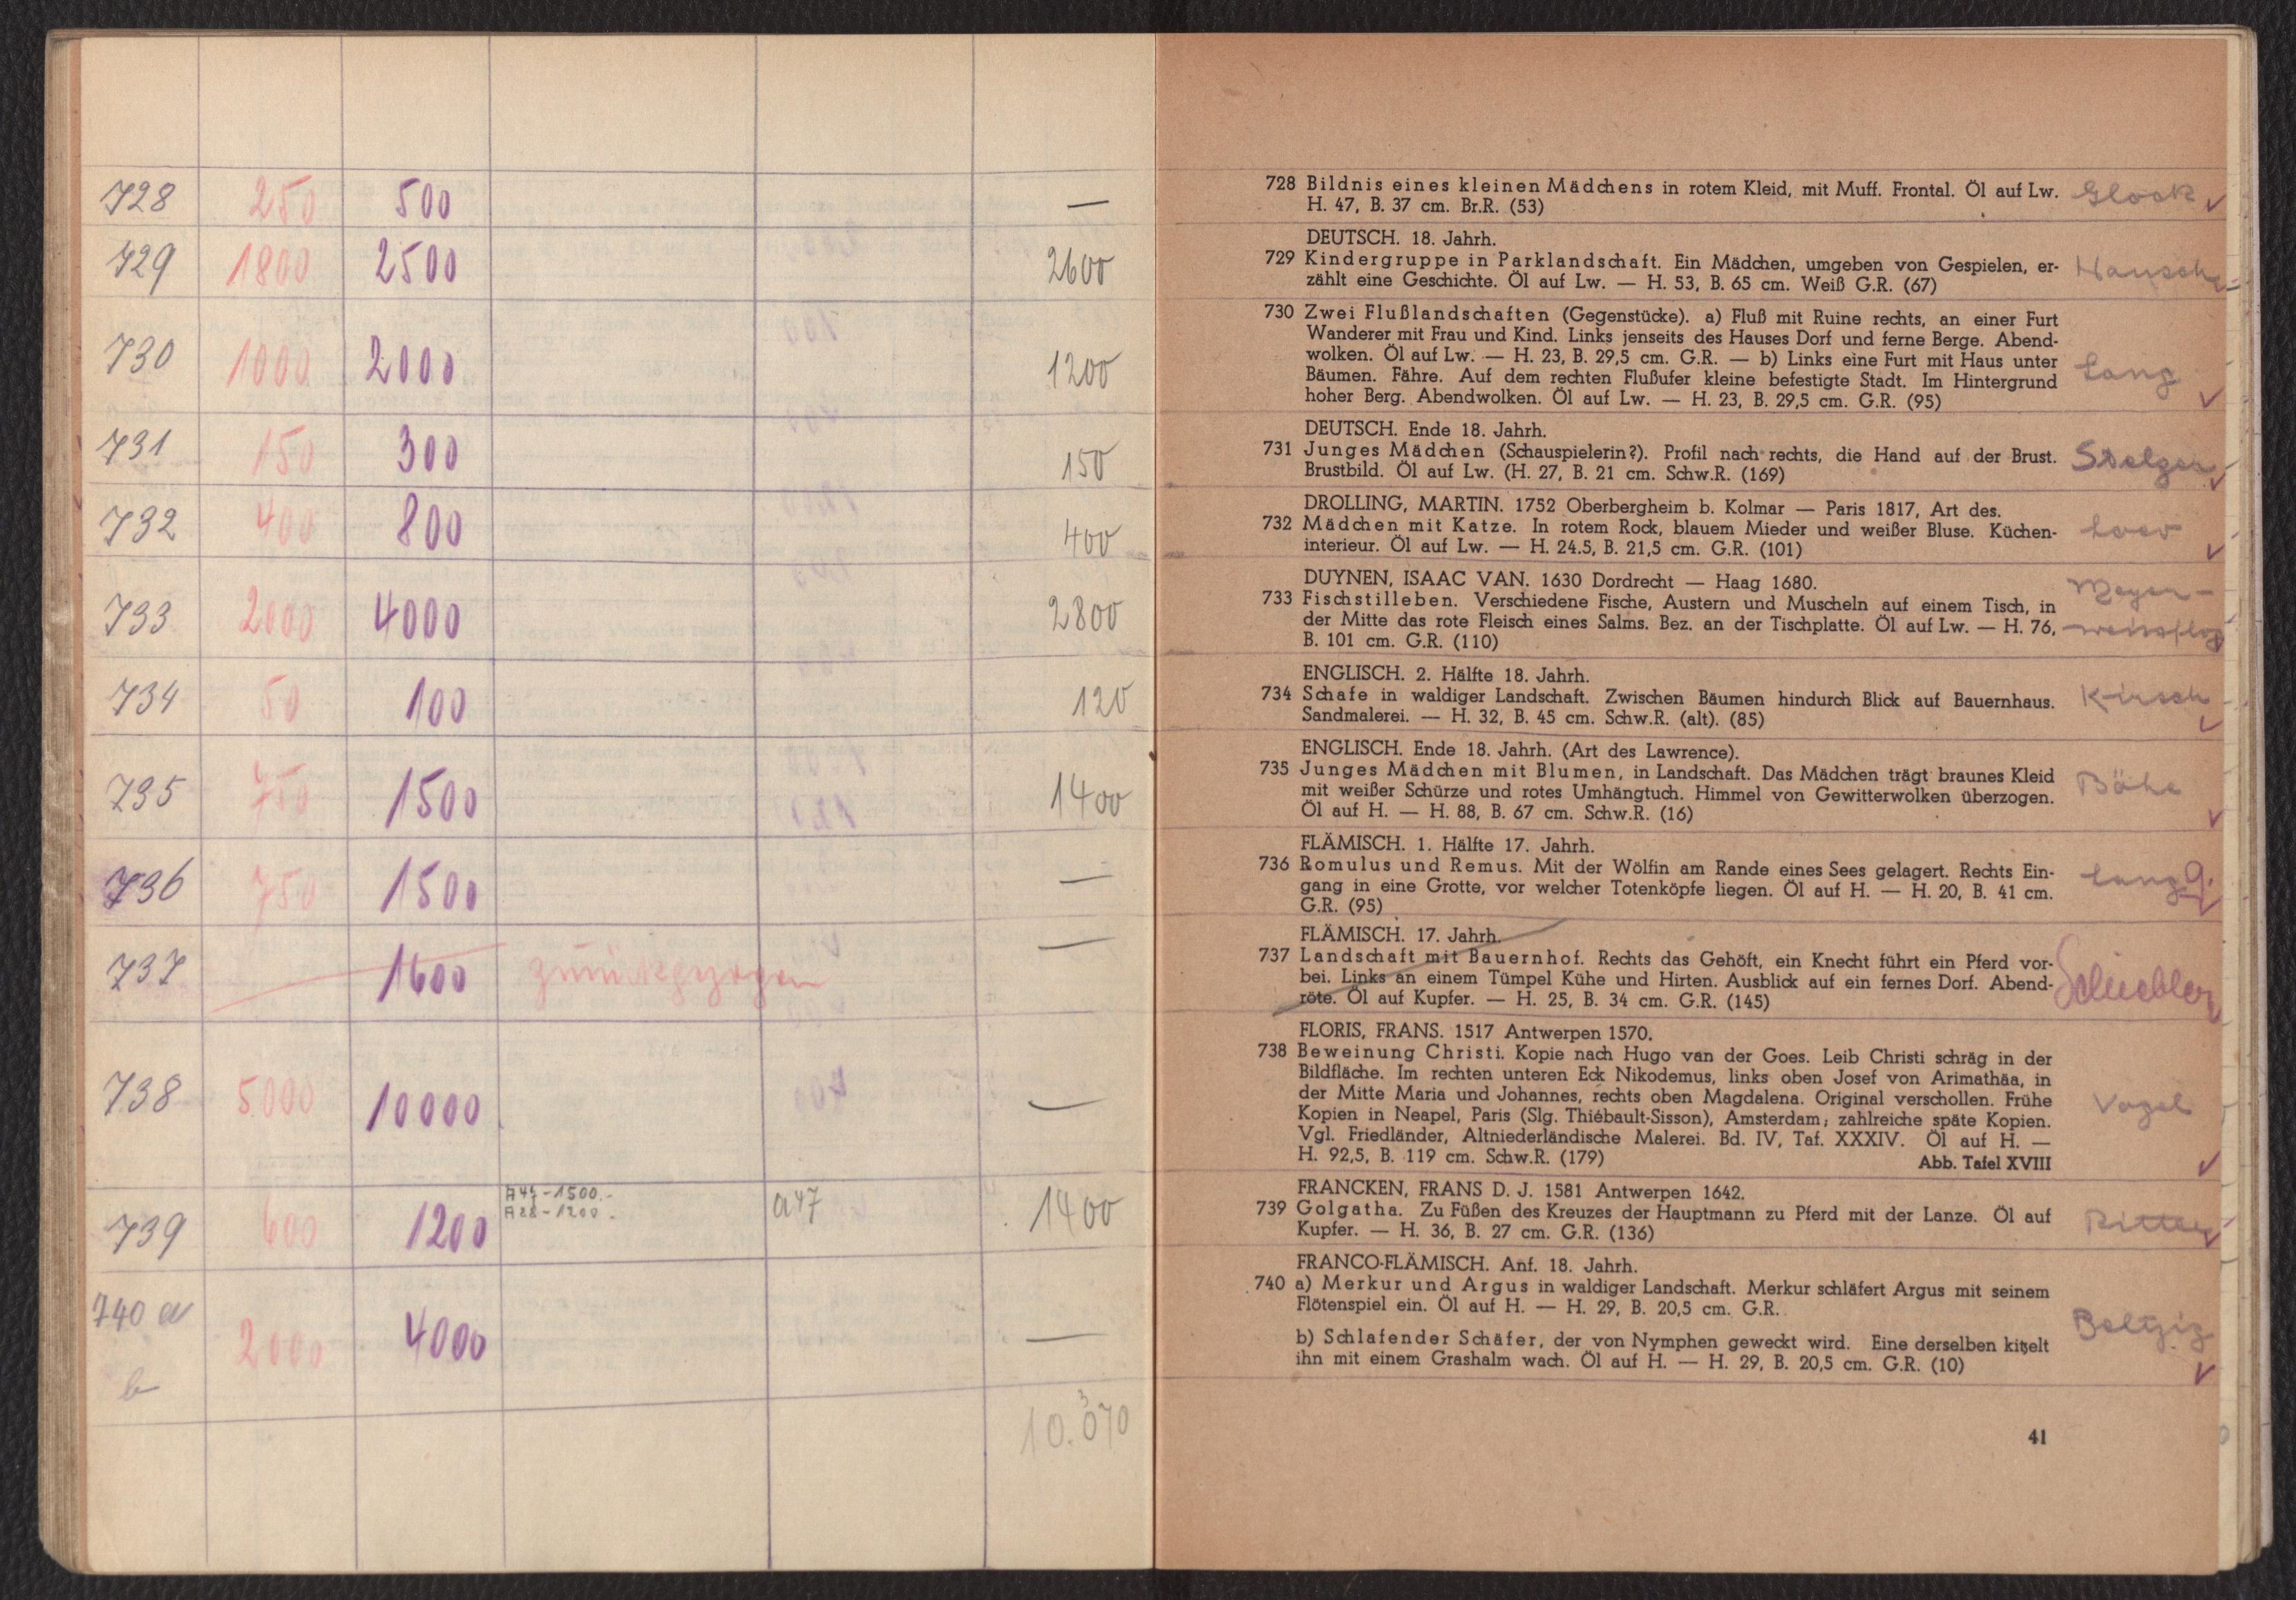 728 250 500 —
729 1800 2500 2600
730 1000 2000 1200
731 150 300 150
732 400 800 400
733 2000 4000 2800
734 50 100 120
735 750 1500 1400
736 750 1500 —
737 1600 zurückgezogen —
738 5000 10000 —
739 600 1200 1500.- 1200.- a47 1400
740 a 2000 4000 —
b
10.070
3
728 Bildnis eines kleinen Mädchens in rotem Kleid, mit Muff. Frontal. Öl auf Lw. Glock
H. 47, B. 37 cm. Br.R. (53)
DEUTSCH. 18. Jahrh.
729 Kindergruppe in Parklandschaft. Ein Mädchen, umgeben von Gespielen, er-
zählt eine Geschichte. Öl auf Lw. — H. 53, B. 65 cm. Weiß G.R. (67)
730 Zwei Flußlandschaften (Gegenstücke). a) Fluß mit Ruine rechts, an einer Furt
Wanderer mit Frau und Kind. Links jenseits des Hauses Dorf und ferne Berge. Abend-
wolken. Öl auf Lw. — H. 23, B. 29,5 cm. G.R. — b) Links eine Furt mit Haus unter
Bäumen. Fähre. Auf dem rechten Flußufer kleine befestigte Stadt. Im Hintergrund Lang
hoher Berg. Abendwolken. Öl auf Lw. — H. 23, B. 29,5 cm. G.R. (95)
DEUTSCH. Ende 18. Jahrh.
731 Junges Mädchen (Schauspielerin?). Profil nach rechts, die Hand auf der Brust.
Brustbild. Öl auf Lw. (H. 27, B. 21 cm. Schw.R. (169)
DROLLING, MARTIN. 1752 Oberbergheim b. Kolmar — Paris 1817, Art des.
732 Mädchen mit Katze. In rotem Rock, blauem Mieder und weißer Bluse. Küchen-
interieur. Öl auf Lw. — H. 24.5, B. 21,5 cm. G.R. (101)
DUYNEN, ISAAC VAN. 1630 Dordrecht — Haag 1680. Meyer-
733 Fischstilleben. Verschiedene Fische, Austern und Muscheln auf einem Tisch, in
der Mitte das rote Fleisch eines Salms. Bez. an der Tischplatte. Öl auf Lw. — H. 76, weissflog
B. 101 cm. G.R. (110)
ENGLISCH. 2. Hälfte 18. Jahrh.
734 Schafe in waldiger Landschaft. Zwischen Bäumen hindurch Blick auf Bauernhaus. Kirsch
Sandmalerei. — H. 32, B. 45 cm. Schw.R. (alt). (85)
ENGLISCH. Ende 18. Jahrh. (Art des Lawrence).
735 Junges Mädchen mit Blumen, in Landschaft. Das Mädchen trägt braunes Kleid
mit weißer Schürze und rotes Umhängtuch. Himmel von Gewitterwolken überzogen.
Öl auf H. — H. 88, B. 67 cm. Schw.R. (16)
FLÄMISCH. 1. Hälfte 17. Jahrh.
736 Romulus und Remus. Mit der Wölfin am Rande eines Sees gelagert. Rechts Ein- Lang
gang in eine Grotte, vor welcher Totenköpfe liegen. Öl auf H. — H. 20, B. 41 cm.
G.R. (95)
FLÄMISCH. 17. Jahrh.
737 Landschaft mit Bauernhof. Rechts das Gehöft, ein Knecht führt ein Pferd vor-
bei. Links an einem Tümpel Kühe und Hirten. Ausblick auf ein fernes Dorf. Abend-
röte. Öl auf Kupfer. — H. 25, B. 34 cm. G.R. (145)
FLORIS, FRANS. 1517 Antwerpen 1570.
738 Beweinung Christi. Kopie nach Hugo van der Goes. Leib Christi schräg in der
Bildfläche. Im rechten unteren Eck Nikodemus, links oben Josef von Arimathäa, in
der Mitte Maria und Johannes, rechts oben Magdalena. Original verschollen. Frühe
Kopien in Neapel, Paris (Slg. Thiébault-Sisson), Amsterdam; zahlreiche späte Kopien. Vogel
Vgl. Friedländer, Altniederländische Malerei. Bd. IV, Taf. XXXIV. Öl auf H. —
H. 92,5, B. 119 cm. Schw.R. (179) Abb. Tafel XVIII
FRANCKEN, FRANS D. J. 1581 Antwerpen 1642.
739 Golgatha. Zu Füßen des Kreuzes der Hauptmann zu Pferd mit der Lanze. Öl auf Ritter
Kupfer. — H. 36, B. 27 cm. G.R. (136)
FRANCO-FLÄMISCH. Anf. 18. Jahrh.
740 a) Merkur und Argus in waldiger Landschaft. Merkur schläfert Argus mit seinem
Flötenspiel ein. Öl auf H. — H. 29, B. 20,5 cm. G.R.
b) Schlafender Schäfer, der von Nymphen geweckt wird. Eine derselben kitzelt
ihn mit einem Grashalm wach. Öl auf H. — H. 29, B. 20,5 cm. G.R. (10)
41